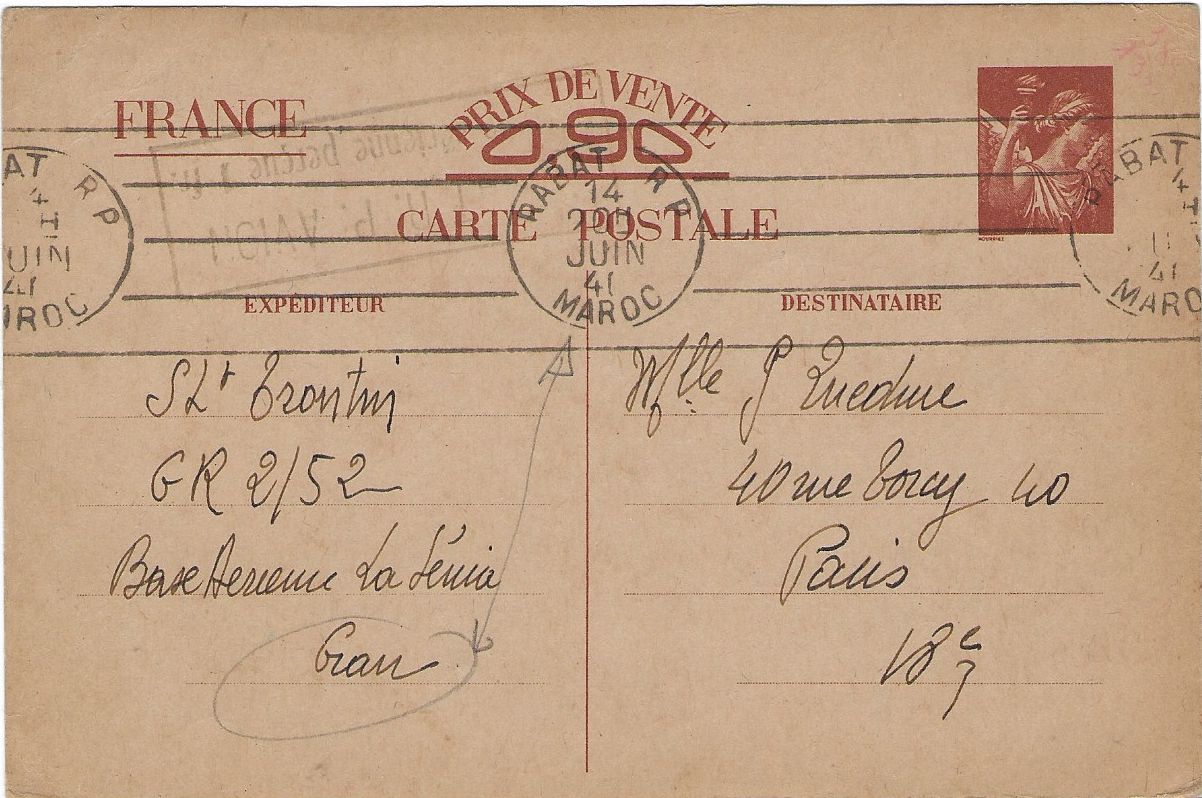 FRANCE
PRIX DE VENTE
0 90
CARTE POSTALE
RABAT R P
14
20H
JUIN
41
MAROC
ABAT R P
JUIN
41
MAROC
RABAT
41
MARO
EXPÉDITEUR
DESTINATAIRE
SLt Trontin
GR 2/52
Base Aerienne La Sénia
Oran
Mlle P
40 rue Torcy 40
Paris
18e